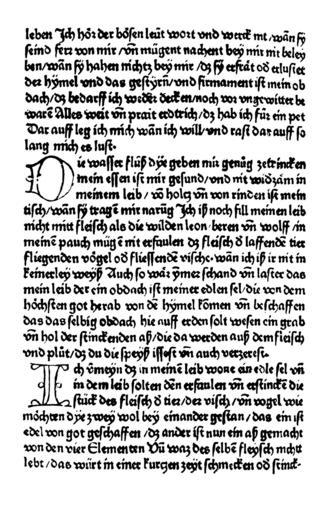 leben Ich hör der bösen leüt wort vnd werck nit/wān sy
seind ferr von mir/vn̄ mügent nachent bey mir nit beley
ben/wān sy haben nichtz bey mir/dz sy erfrät od erlustet
der hymel vnd das gestyrn/vnd firmament ist mein ob
dach/dz bedarff ich weder decken/noch vor vngewitter be
waren Alles weit vn̄ prait erdtrich/dz hab ich für ein pet
Dar auff leg ich mich wān ich will/vnd rast dar auff so
lang mich es lust.
Die wasser flüß dye geben mir genůg zetrincken
mein essen ist mir gesund/vnd nit widzäm in
meinem leib/vō holtz vn̄ von rinden ist mein
tisch/wān sy tragē mir narūg Ich iß noch fill meinen leib
nicht mitt fleisch als die wilden leon·beren vn̄ wolff/in
meinē pauch mügē nit erfaulen dz fleisch d laffendē tier
fliegenden vögel od fliessendē vische·wān ich iß ir nit in
keinerley weyß Auch so wär ymer schand vn̄ laster das
mein leib der ein obdach ist meiner edlen sel/die von dem
höchsten got herab von dē hymel kōmen vn̄ beschaffen
das das selbig obdach hie auff erden solt wesen ein grab
vn̄ hol der stinckenden aß/die da werden auß dem fleisch
vnd plůt/dz du die speyß issest vn̄ auch verzerest.
Ich vermeyn dz in meinē leib wone ein edle sel vn̄
in dem leib solten den erfaulen vn̄ erstincke die
stück des fleisch d tier/der visch/vn̄ vogel wie
möchten dye zwey wol bey einander gestan/das ein ist
edel von got geschaffen/dz ander ist nun ein aß gemacht
von den vier Elementen Vn̄ waz des selbē fleysch nicht
lebt/das würt in einer kurtzen zeyt schmecken od stinck⸗